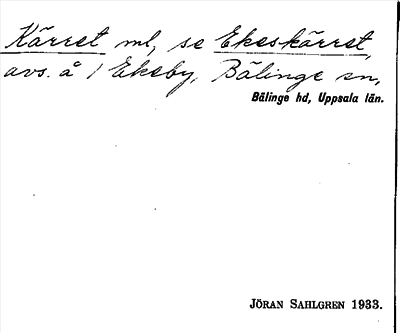 Kärret ml, se Ekeskärret,
avs. å 1 Ekeby, Bälinge sn,
Bälinge hd, Uppsala län.
JÖRAN SAHLGREN 1933.